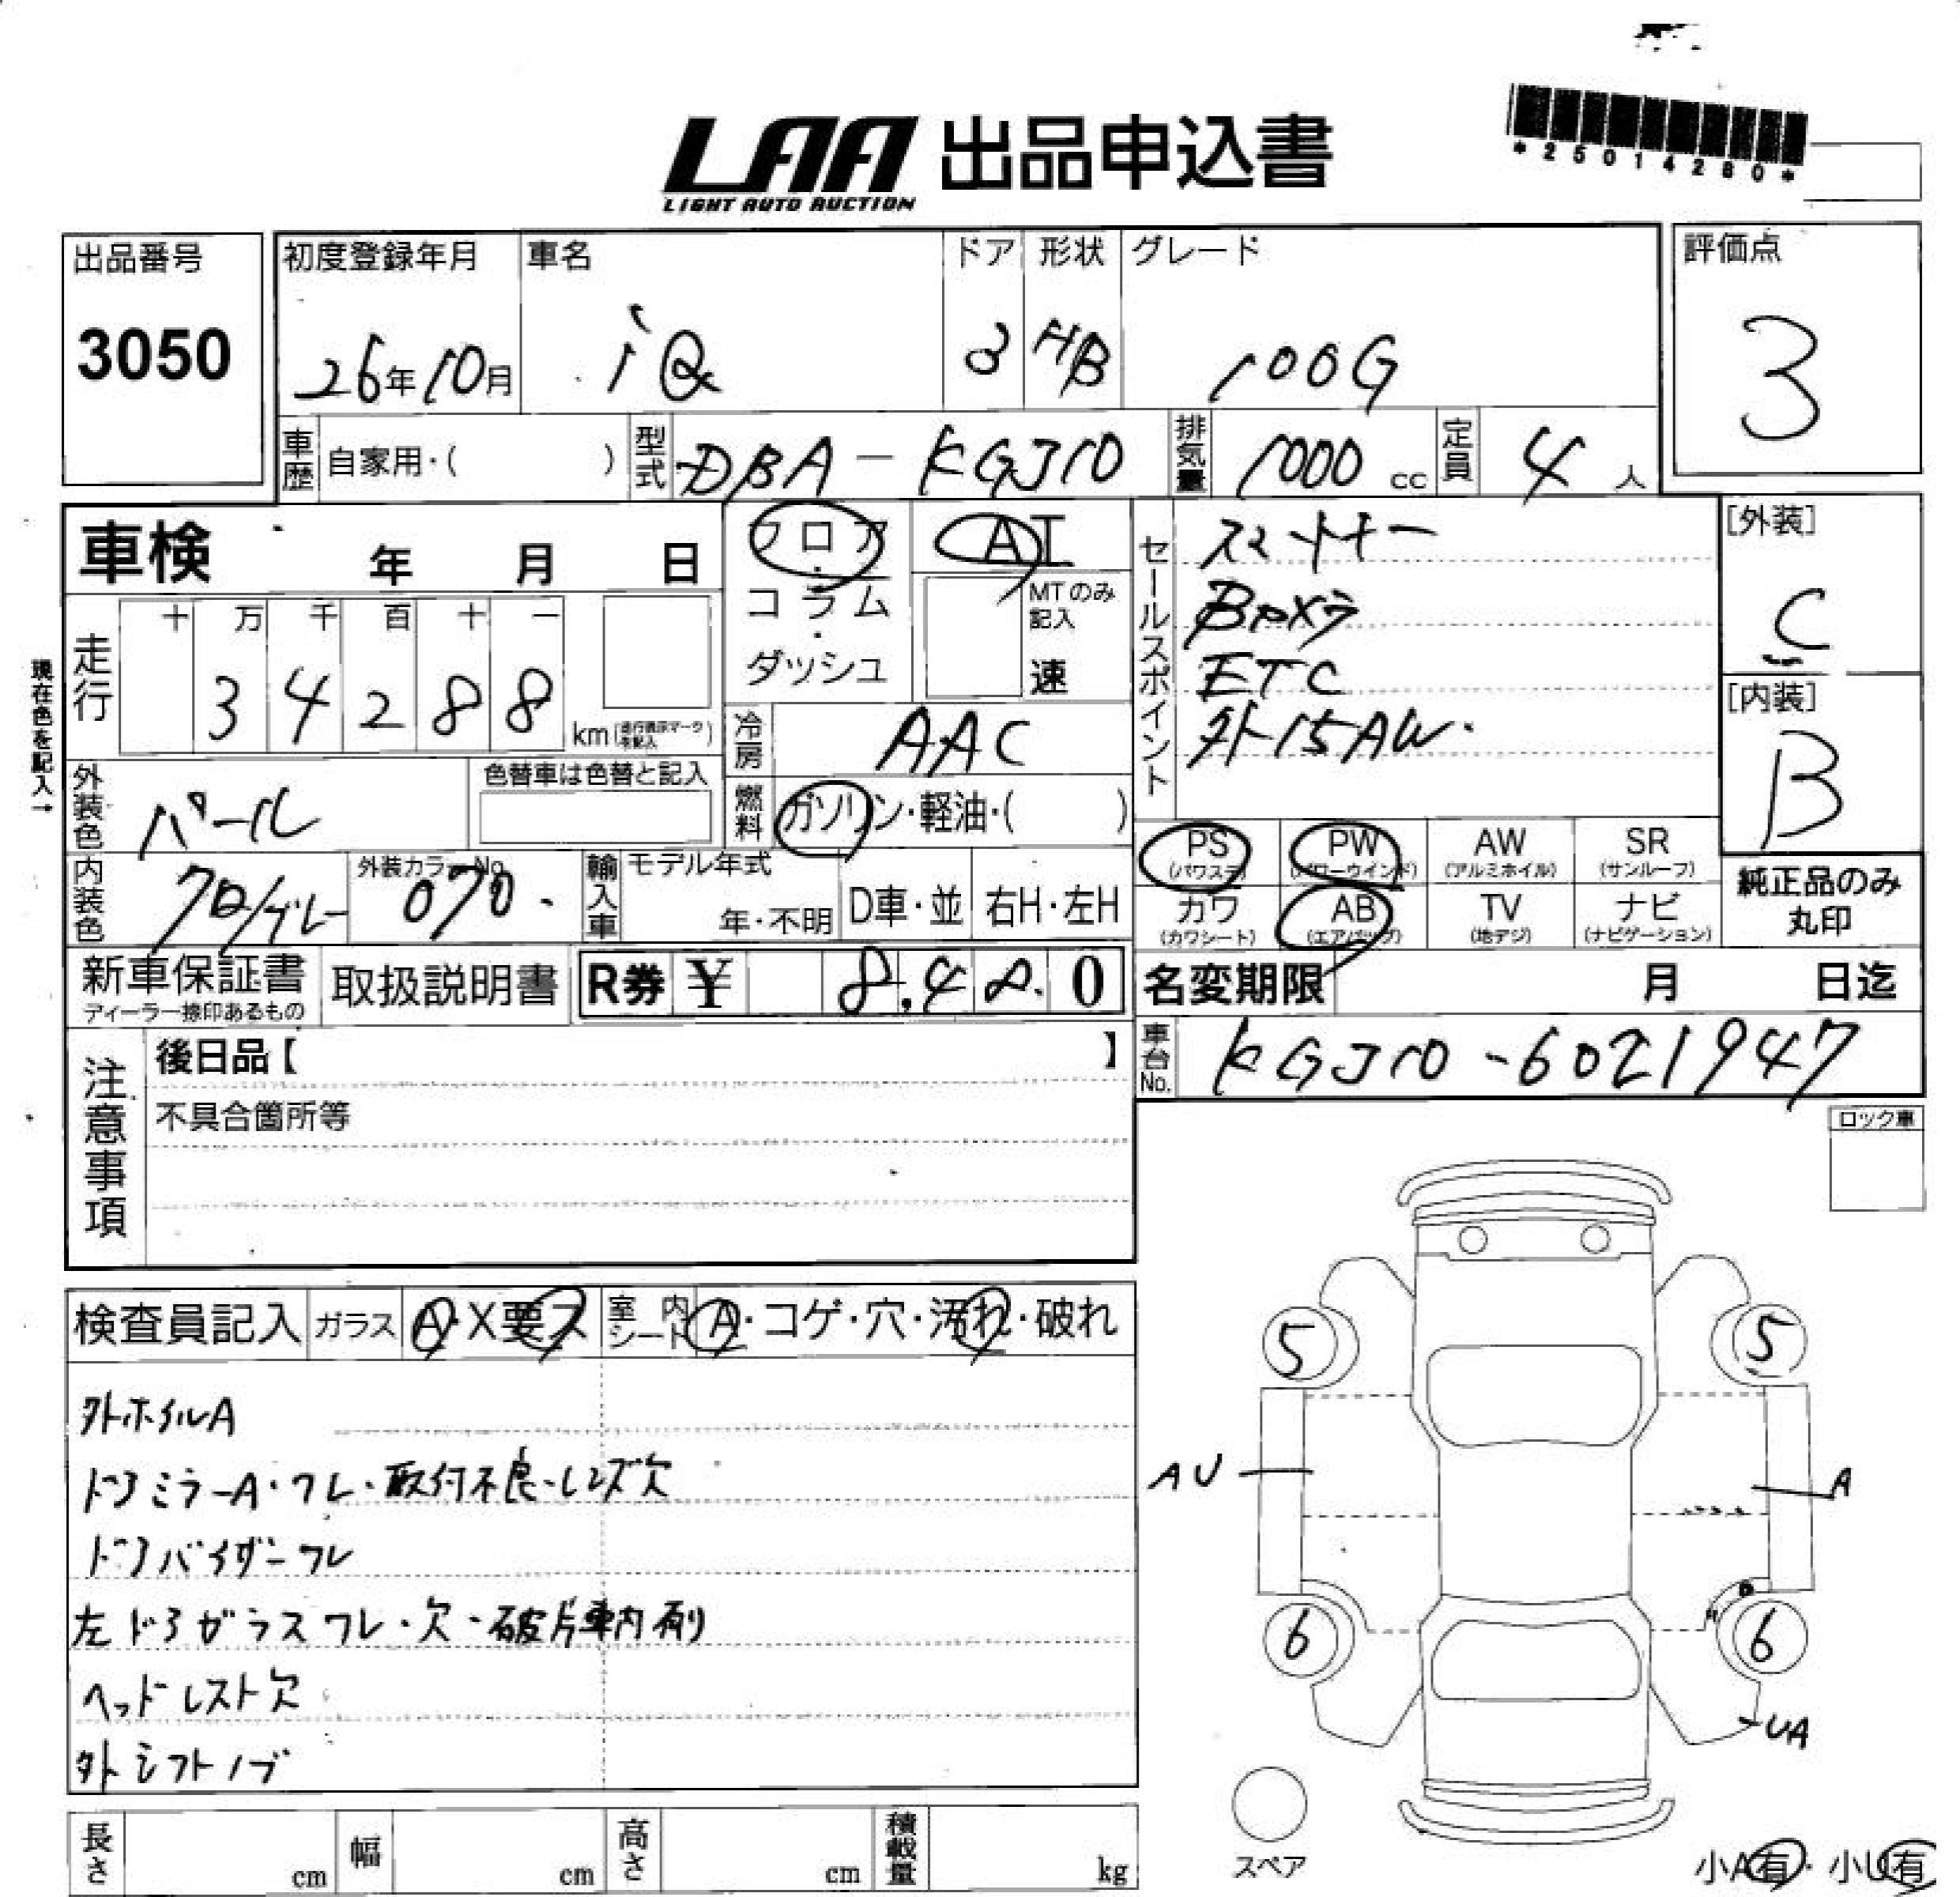 *25014280*
LAA 出品申込書
LIGHT AUTO AUCTION
出品番号
3050
初度登録年月
26年10月
車名
iQ
ドア
3
形状
HB
グレード
100G
評価点
3
車歴
自家用・( )
型式
DBA-KGJ10
排気量
1000 cc
定員
4 人
車検 年 月 日
フロア・コラム・ダッシュ
AT
MTのみ記入
速
セールスポイント
スマートキー
Bカメラ
ETC
外15AW.
[外装]
C
[内装]
B
現在色を記入→
走行
十 万 千 百 十 一
3 4 2 8 8
km (走行表示マークを記入)
冷房
AAC
外装色
パール
色替車は色替と記入
燃料
ガソリン・軽油・( )
内装色
クロ/グレー
外装カラーNo.
070.
輸入車
モデル年式
年・不明
D車・並
右H・左H
PS (パワステ)
PW (パワーウインド)
AW (アルミホイル)
SR (サンルーフ)
カワ (カワシート)
AB (エアバッグ)
TV (地デジ)
ナビ (ナビゲーション)
純正品のみ
丸印
新車保証書
ディーラー捺印あるもの
取扱説明書
R券 ¥ 8,480
名変期限 月 日迄
注意事項
後日品【 】
不具合箇所等
車台No.
KGJ10-6021947
ロック車
検査員記入
ガラス
A・X要ス
室内シート
A・コゲ・穴・汚れ・破れ
外ホイルA
ドアミラーA・ワレ・取付不良・レンズ欠
ドアバイザーワレ
左ドアガラスワレ・欠・破片車内有り
ヘッドレスト欠
外シフトノブ
5
5
AU
A
6
6
UA
スペア
小A有・小U有
長さ cm
幅 cm
高さ cm
積載量 kg